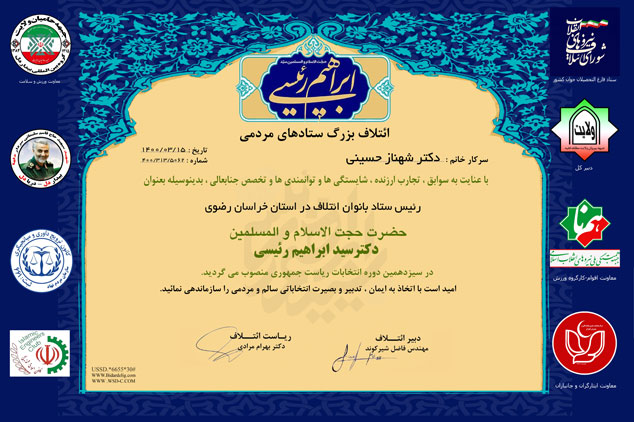 حجت الاسلام و المسلمین سید
ابراهیم رئیسی
ائتلاف بزرگ ستادهای مردمی
تاریخ : ۱۴۰۰/۰۳/۱۵
شماره : ۴۰۰/۳۱۳/۵۰۶۲
سرکار خانم : دکتر شهناز حسینی
با عنایت به سوابق ، تجارب ارزنده ، شایستگی ها و توانمندی ها و تخصص جنابعالی ، بدینوسیله بعنوان
رئیس ستاد بانوان ائتلاف در استان خراسان رضوی
حضرت حجت الاسلام و المسلمین
دکترسید ابراهیم رئیسی
در سیزدهمین دوره انتخابات ریاست جمهوری منصوب می گردید.
امید است با اتخاذ به ایمان ، تدبیر و بصیرت انتخاباتی سالم و مردمی را سازماندهی نمائید.
دبیر ائتلاف
مهندس فاضل شیرکوند
ریاست ائتلاف
دکتر بهرام مرادی
USSD.*6655*30#
WWW.Bidardelig.com
WWW .WSD-C.COM
جبهه حامیان ولایت
معاونت ورزش و سلامت
کانون ترویج داوری و میانجیگری
Islamic Engineers Club
شورای ائتلاف نیروهای انقلاب اسلامی
ستاد فارغ التحصیلان جوان کشور
ولایت
دبیر کل
معاونت اقوام-کارگروه ورزش
معاونت ایثارگران و جانبازان